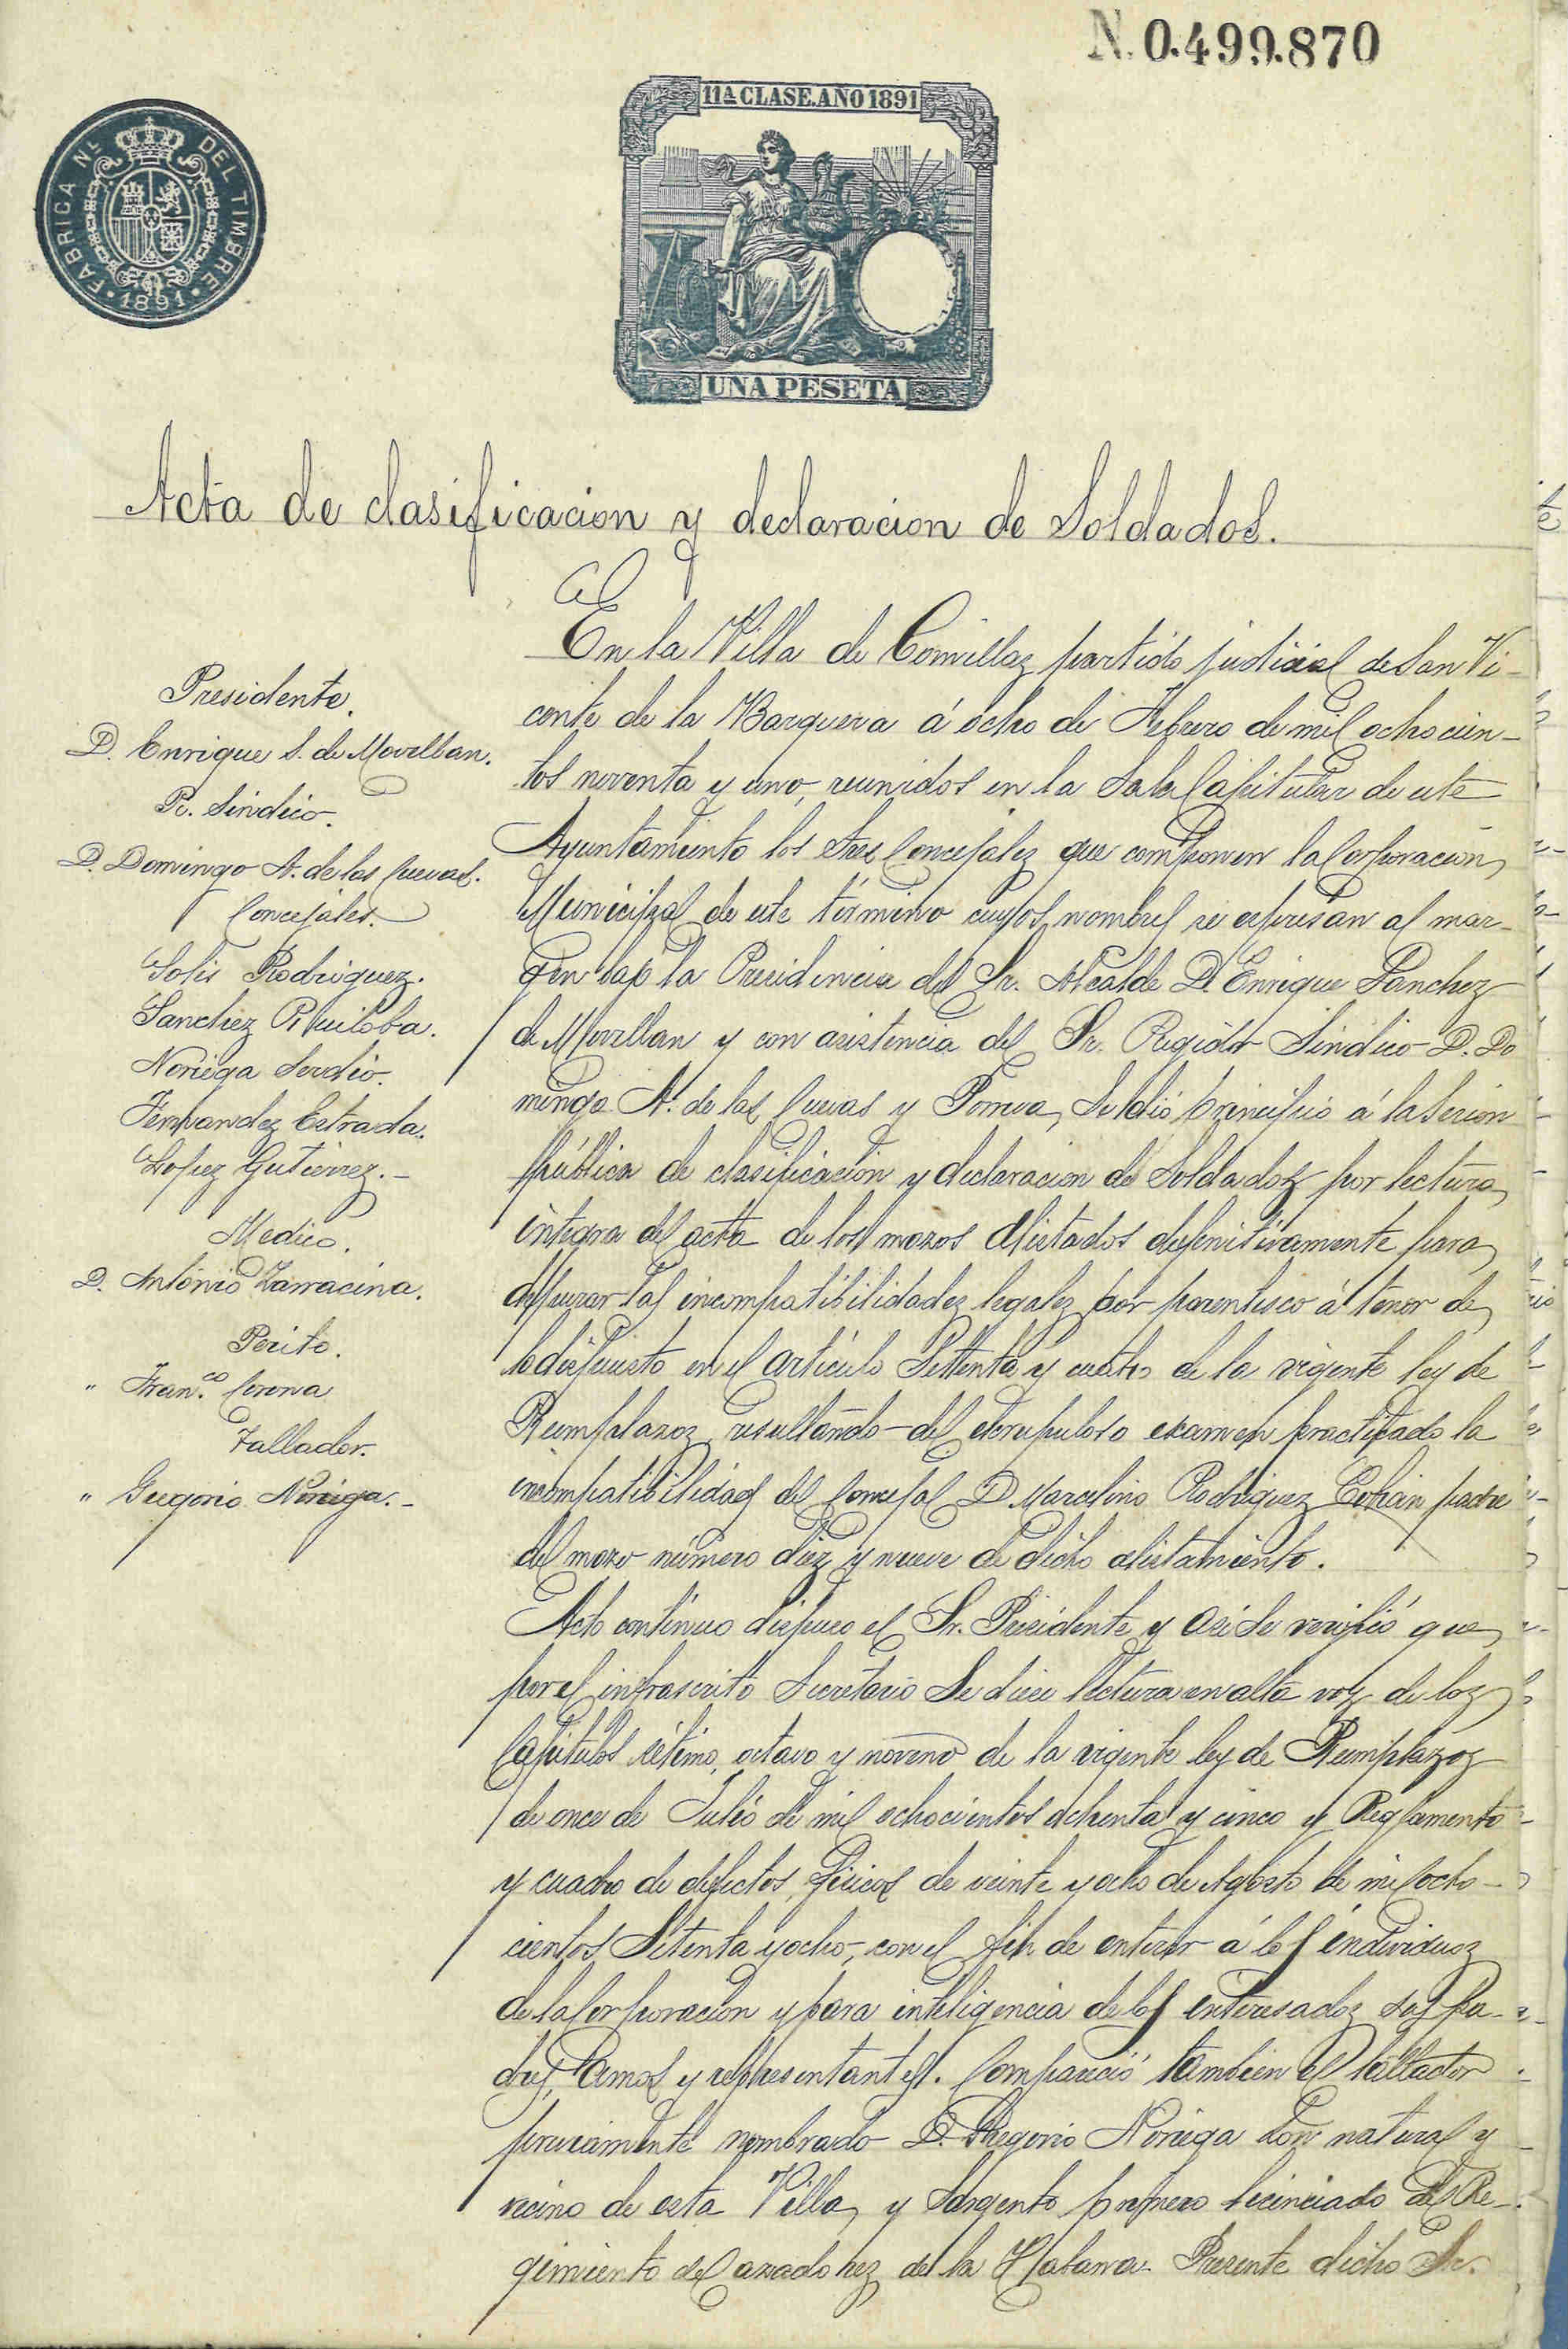 N. 0.499.870
11ª CLASE. AÑO 1891
FABRICA Nˡ DEL TIMBRE
1891
UNA PESETA
Acta de clasificacion y declaracion de Soldados.
Presidente.
D. Enrique S. de Movellan.
Pr. Sindico.
D. Domingo A. de las Cuevas.
Concejales.
Solis Rodriguez.
Sanchez Ruiloba.
Noriega Serdio.
Fernandez Estrada.
Lopez Gutierrez. -
Medico.
D. Antonio Zarracina.
Perito.
" Fran.co Corona
Tallador.
" Gregorio Noriega. -
En la Villa de Comillaz partido judicial de San Vi-
cente de la Barquera á ocho de Febrero de mil ochocien-
tos noventa y uno, reunidos en la Sala Capitular de este
Ayuntamiento los Sres Concejalez que componen la Corporacion
Municipal de este término cuyos nombres se espresan al mar-
gen bajo la Presidencia del Sr. Alcalde D. Enrique Sanchez
de Movellan y con asistencia del Sr. Regidor Sindico D. Do
mingo A. de las Cuevas y Porrua, Se dió principio á la Sesion
pública de clasificacion y declaracion de Soldadoz por lectura
integra del acta de los mozos alistados definitivamente para
depurar las incompatibilidadez legalez por parentesco á tenor de
lo dispuesto en el articulo Settenta y cuatro de la vigente ley de
Reemplazoz, resultando del escrupuloso examen practicado la
incompatibilidad del Concejal D Marcelino Rodriguez padre
del mozo número diez y nueve de dicho alistamiento.
Acto continuo dispuso el Sr. Presidente y asi se verificó que
por el infrascrito Secretario Se diese lectura en alta voz de loz
Capitulos sétimo, octavo y noveno de la vigente ley de Reemplazoz
de once de Julio de mil ochocientos ochenta y cinco y Reglamento
y cuadro de defectos fisicos de veinte y ocho de Agosto de mil ocho-
cientos Setenta y ocho, con el fin de enterar á los individuoz
de la Corporacion y para inteligencia de los interesadoz sus pa-
dres, amos y representantes. Compareció tambien el tallador
previamente nombrado D. Gregorio Noriega natural y
vecino de esta Villa, y Sargento primero licenciado del Re-
gimiento de Cazadorez de la Habana. Presente dicho Sr.